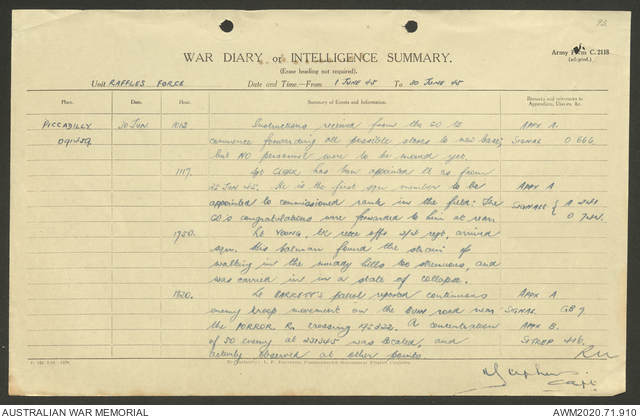 93.
WAR DIARY or INTELLIGENCE SUMMARY.
Army Form C. 2118
(adapted.)
(Erase heading not required).
Unit RAFFLES FORCE Date and Time.—From 1 JUNE 45 To 30 JUNE 45
Place. Date. Hour. Summary of Events and Information. Remarks and references to Appendices, Diaries, &c.
PICCADILLY 20 JUN 1012 Instructions received from the CO to APPX A.
091459 commence forwarding all possible stores to new base, SIGNAL O 666.
but NO personnel were to be moved yet.
1117. Sgt CLERK has been appointed Lt as from
25 JUN 45. He is the first sqn member to be APPX A
appointed to commissioned rank in the field. The SIGNALS { A 241
CO's congratulations were forwarded to him at rear. O 744.
1750. Lt YOUNG, Lt rece offr 2/4 regt, arrived
sqn. His batman found the strain of
walking in the muddy hills too strenuous, and
was carried in in a state of collapse.
1820. Lt BARRETT's patrol reported continuous APPX A
enemy troop movement on the BUIN road near SIGNAL GB 7
the PORROR Rv crossing 195322. A concentration APPX B.
of 50 enemy at 221345 was located, and SITREP 416.
actively observed at other points.
Capt.
AUSTRALIAN WAR MEMORIAL
AWM2020.71.910